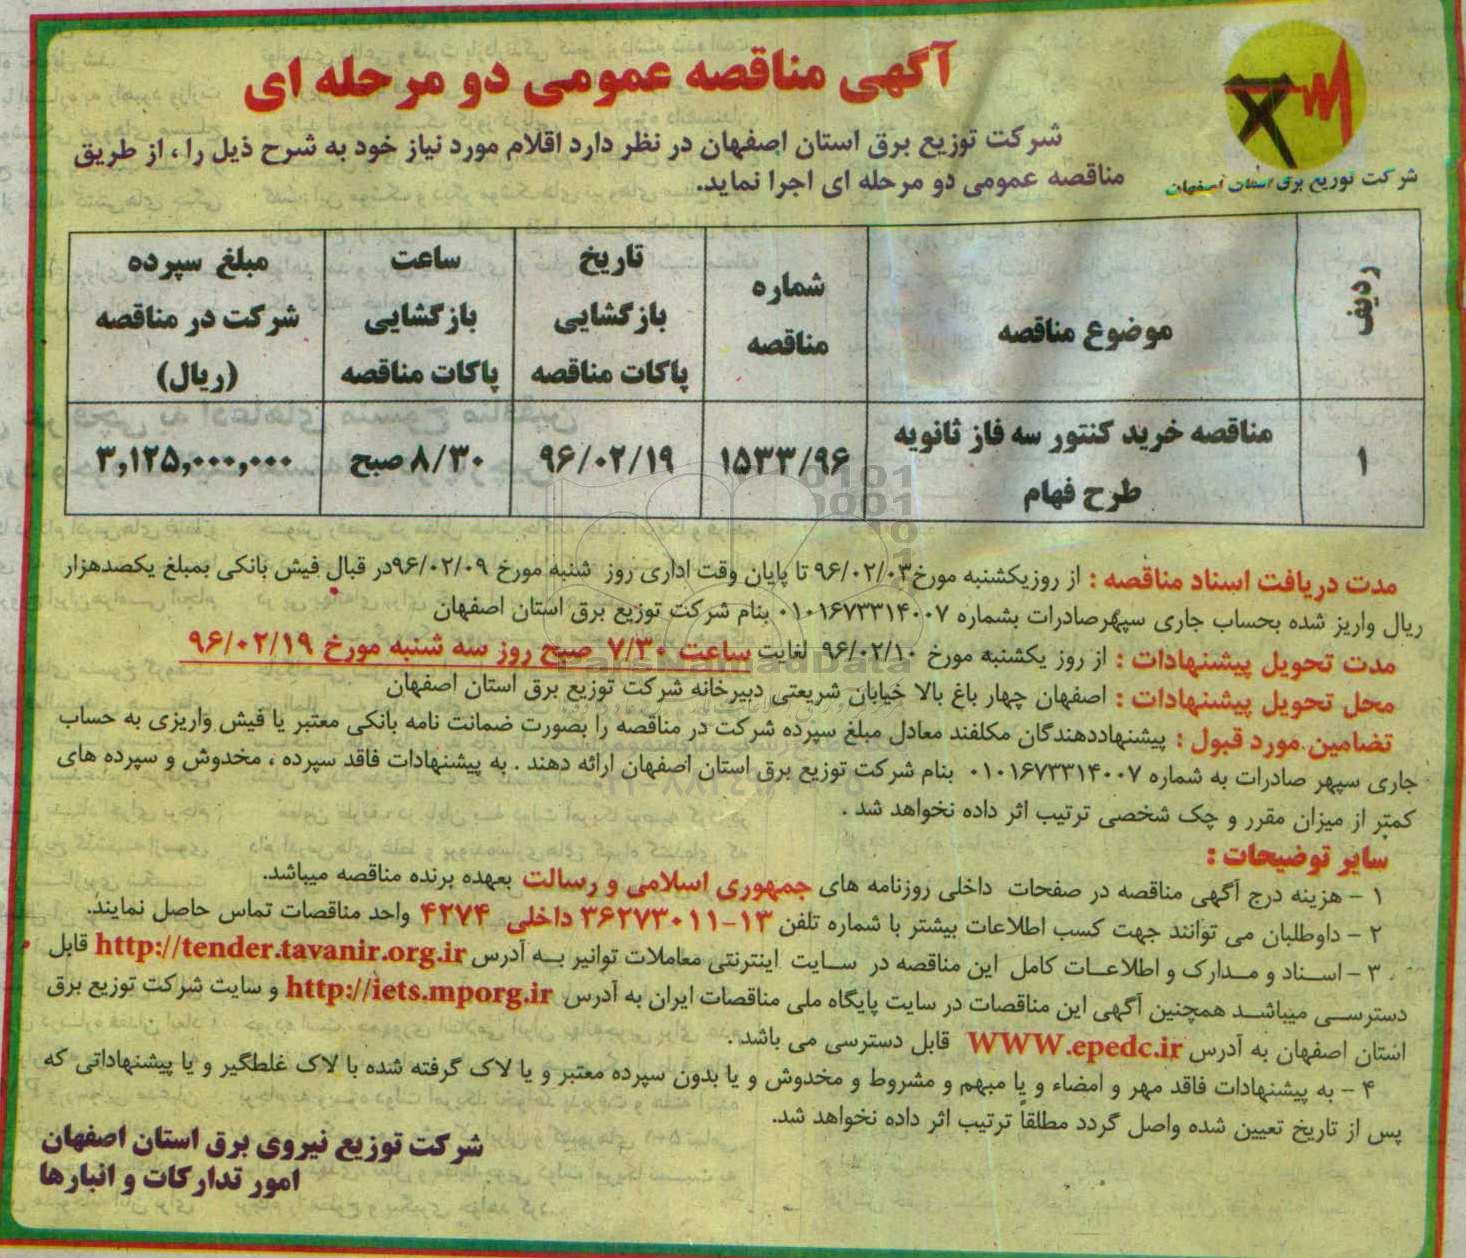 آگهی مناقصه عمومی دو مرحله ای
شرکت توزیع برق استان اصفهان
شرکت توزیع برق استان اصفهان در نظر دارد اقلام مورد نیاز خود به شرح ذیل را ، از طریق
مناقصه عمومی دو مرحله ای اجرا نماید.
ردیف
موضوع مناقصه
شماره
مناقصه
تاریخ
بازگشایی
پاکات مناقصه
ساعت
بازگشایی
پاکات مناقصه
مبلغ سپرده
شرکت در مناقصه
(ریال)
۱
مناقصه خرید کنتور سه فاز ثانویه
طرح فهام
۱۵۳۳/۹۶
۹۶/۰۲/۱۹
۸/۳۰ صبح
۳,۱۲۵,۰۰۰,۰۰۰
مدت دریافت اسناد مناقصه : از روزیکشنبه مورخ۹۶/۰۲/۰۳ تا پایان وقت اداری روز شنبه مورخ ۹۶/۰۲/۰۹در قبال فیش بانکی بمبلغ یکصدهزار
ریال واریز شده بحساب جاری سپهرصادرات بشماره ۰۱۰۱۶۷۳۳۱۴۰۰۷ بنام شرکت توزیع برق استان اصفهان
مدت تحویل پیشنهادات : از روز یکشنبه مورخ ۹۶/۰۲/۱۰ لغایت ساعت ۷/۳۰ صبح روز سه شنبه مورخ ۹۶/۰۲/۱۹
محل تحویل پیشنهادات : اصفهان چهار باغ بالا خیابان شریعتی دبیرخانه شرکت توزیع برق استان اصفهان
تضامین مورد قبول : پیشنهاددهندگان مکلفند معادل مبلغ سپرده شرکت در مناقصه را بصورت ضمانت نامه بانکی معتبر یا فیش واریزی به حساب
جاری سپهر صادرات به شماره ۰۱۰۱۶۷۳۳۱۴۰۰۷ بنام شرکت توزیع برق استان اصفهان ارائه دهند . به پیشنهادات فاقد سپرده ، مخدوش و سپرده های
کمتر از میزان مقرر و چک شخصی ترتیب اثر داده نخواهد شد .
سایر توضیحات :
۱ - هزینه درج آگهی مناقصه در صفحات داخلی روزنامه های جمهوری اسلامی و رسالت بعهده برنده مناقصه میباشد.
۲ - داوطلبان می توانند جهت کسب اطلاعات بیشتر با شماره تلفن ۱۳-۳۶۲۷۳۰۱۱ داخلی ۴۲۷۴ واحد مناقصات تماس حاصل نمایند.
۳ - اسناد و مدارک و اطلاعات کامل این مناقصه در سایت اینترنتی معاملات توانیر به آدرس http://tender.tavanir.org.ir قابل
دسترسی میباشد همچنین آگهی این مناقصات در سایت پایگاه ملی مناقصات ایران به آدرس http://iets.mporg.ir و سایت شرکت توزیع برق
استان اصفهان به آدرس WWW.epedc.ir قابل دسترسی می باشد .
۴ - به پیشنهادات فاقد مهر و امضاء و یا مبهم و مشروط و مخدوش و یا بدون سپرده معتبر و یا لاک گرفته شده با لاک غلطگیر و یا پیشنهاداتی که
پس از تاریخ تعیین شده واصل گردد مطلقاً ترتیب اثر داده نخواهد شد.
شرکت توزیع نیروی برق استان اصفهان
امور تدارکات و انبارها